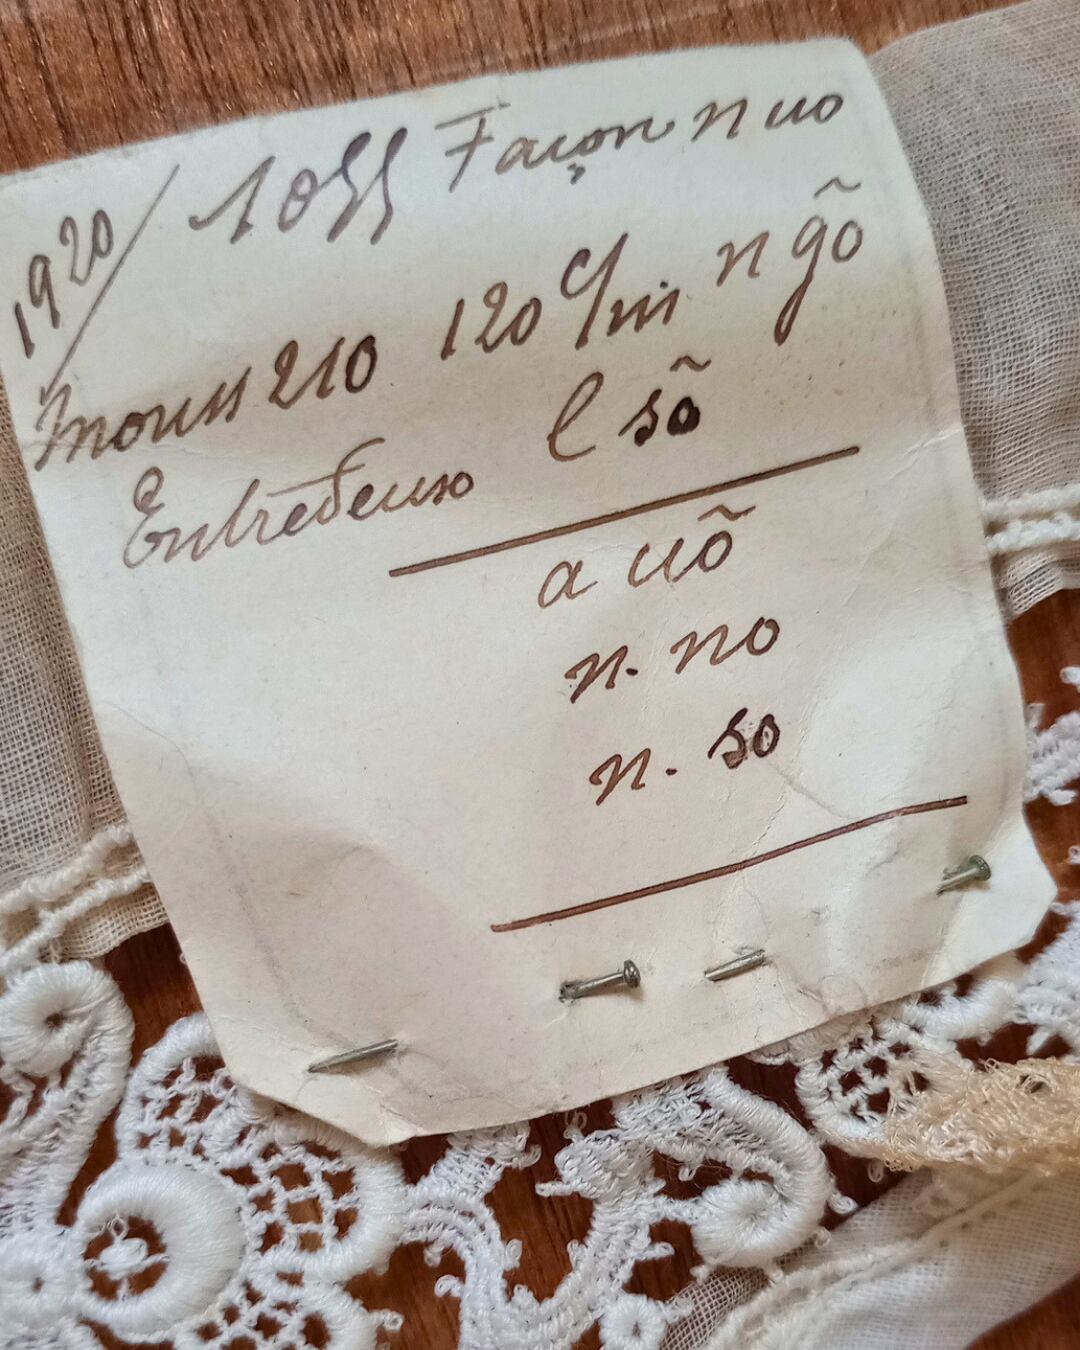 1920/ 1055 Façon n uo
Mouss 210 120 c/m n gõ
Entredeux l sõ
a uõ
n. no
n. so